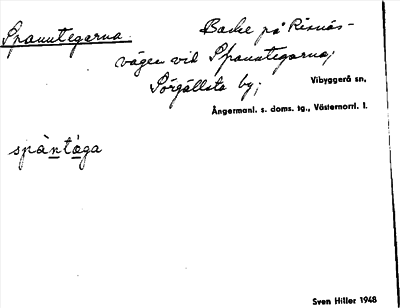 Spanntegarna.
Backe på Risnäs-
vägen vid Spanntegarna,
Sörgällsta by;
Vibyggerå sn,
Ångermanl. s. doms. tg., Västernorrl. l.
spàntèga
Sven Hiller 1948